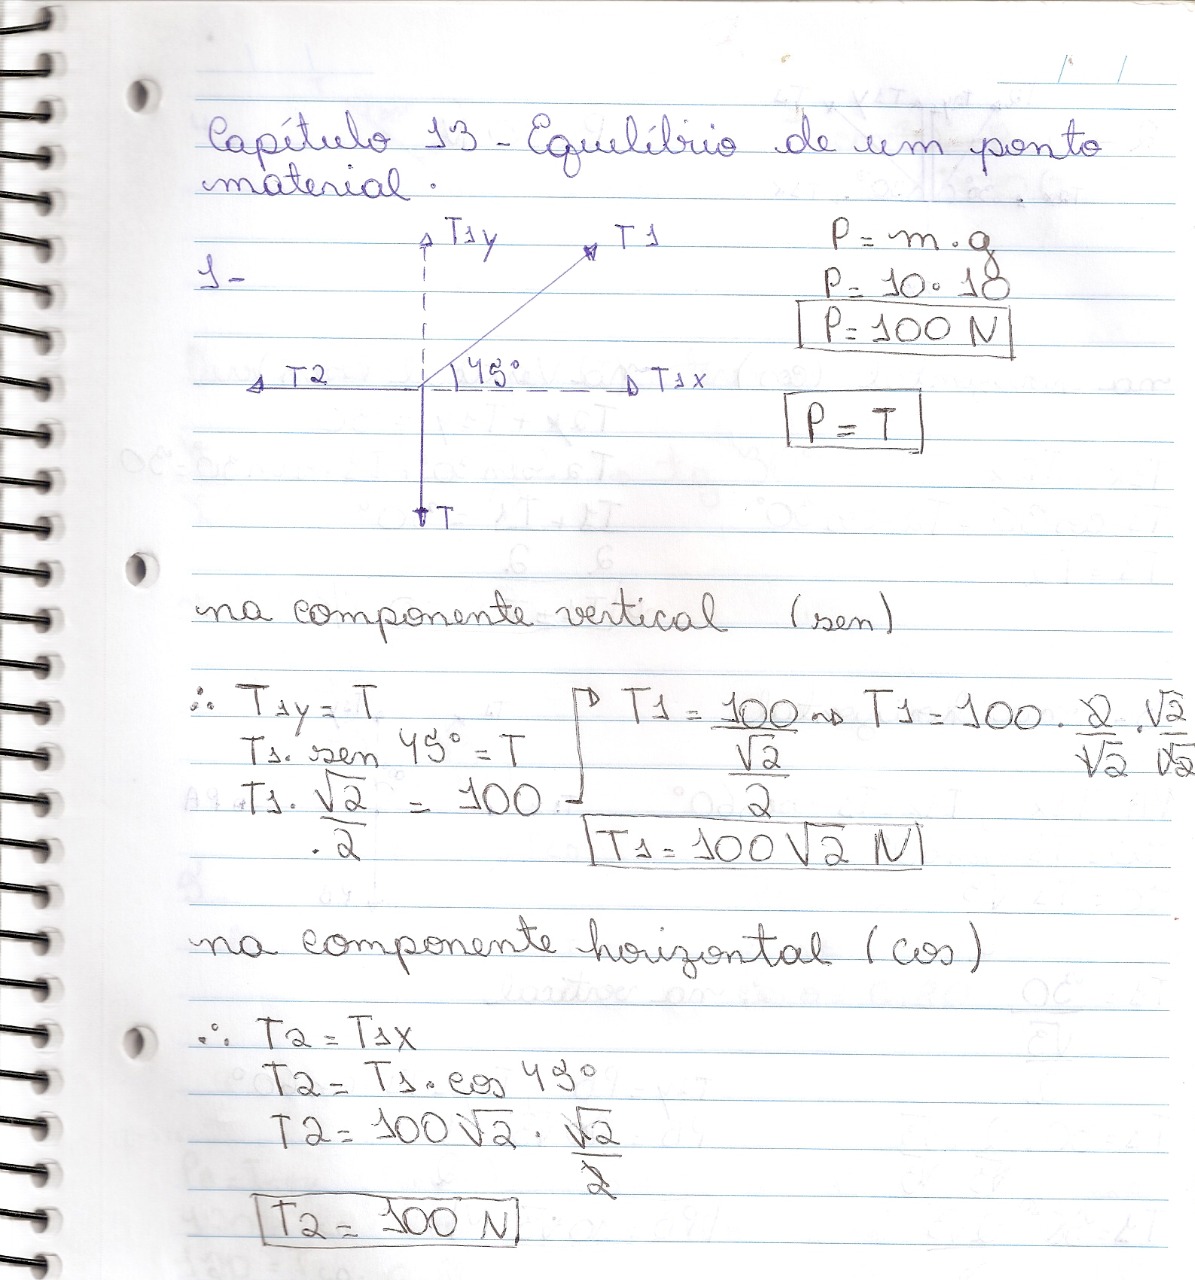 Capítulo 13 - Equilíbrio de um ponto
material.
1-
T1y
T1
T2
45°
T1x
T
P = m . g
P = 10 . 10
P = 100 N
P = T
na componente vertical (sen)
∴ T1y = T
T1 . sen 45° = T
T1 . √2/2 = 100
T1 = 100/(√2/2) ⇒ T1 = 100 . 2/√2 . √2/√2
T1 = 100√2 N
na componente horizontal (cos)
∴ T2 = T1x
T2 = T1 . cos 45°
T2 = 100√2 . √2/2
T2 = 100 N